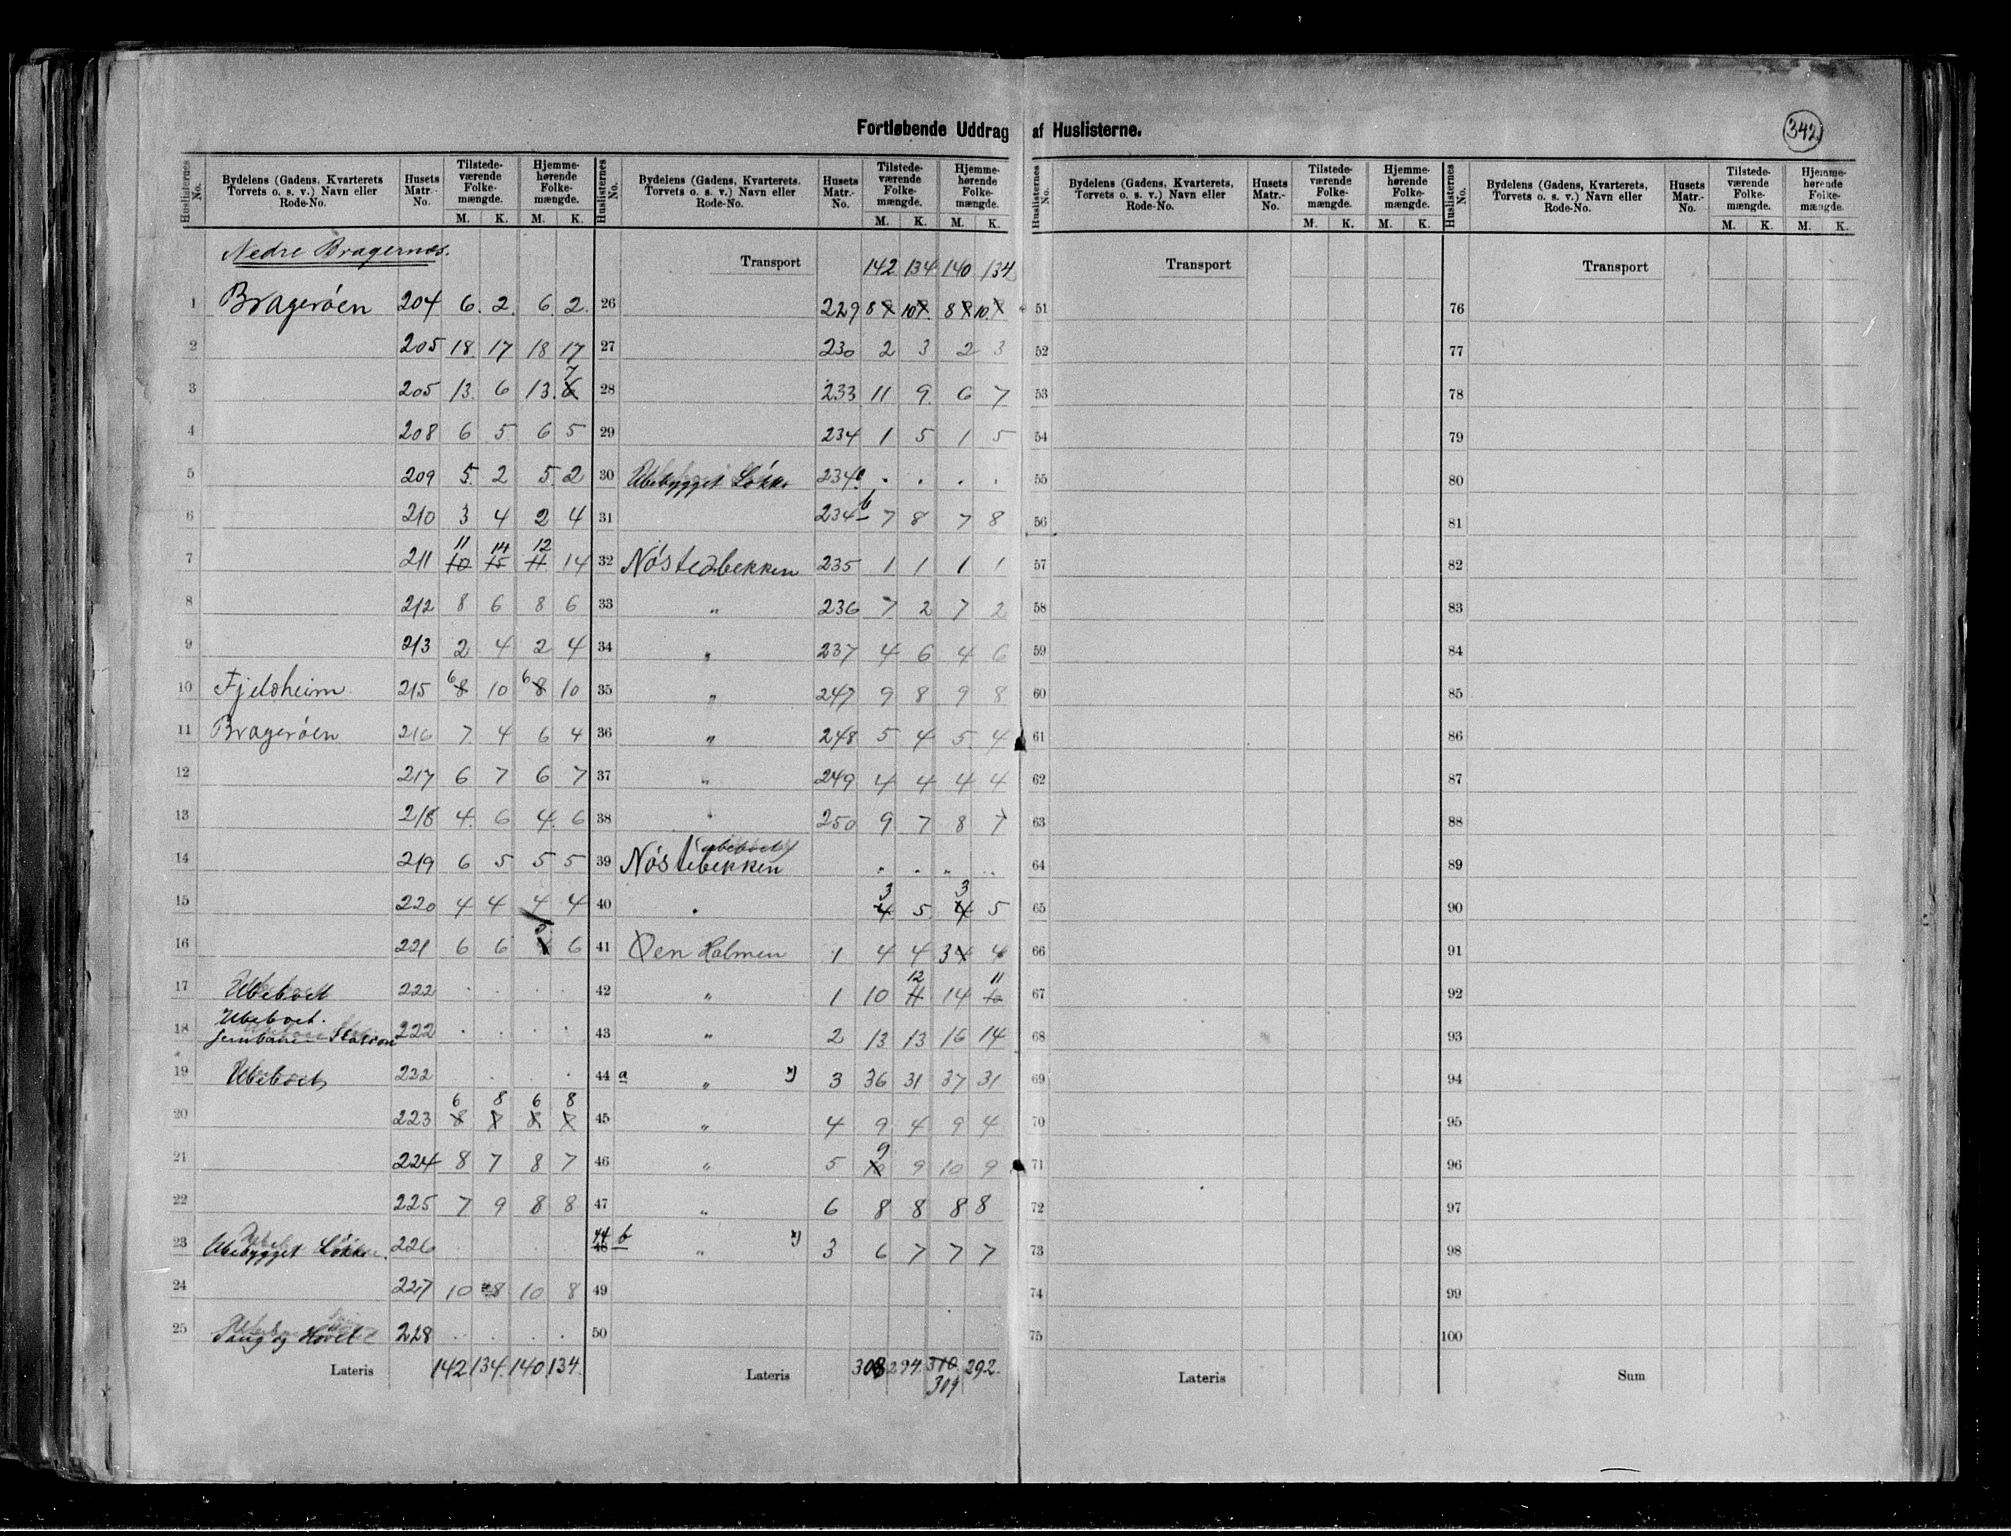 Fortløbende Uddrag af Huslisterne.
342
Huslisternes No. | Bydelens (Gadens, Kvarterets, Torvets o. s. v.) Navn eller Rode-No. | Husets Matr.-No. | Tilstedeværende Folkemængde. M. K. | Hjemmehørende Folkemængde. M. K.
Nedre Bragernæs.
1 Bragerøen 204 6. 2. 6. 2.
2 205 18 17 18 17
3 205 13. 6 13. 7
4 208 6 5 6 5
5 209 5. 2 5. 2
6 210 3 4 2 4
7 211 11 14 12 14
8 212 8 6 8 6
9 213 2 4 2 4
10 Fjeldheim 215 6 10 6 10
11 Bragerøen 216 7 4 6 4
12 217 6 7 6 7
13 218 4. 6 4. 6
14 219 6 5 5 5
15 220 4 4 4 4
16 221 6 6 5 6
17 Ubeboet 222 . . . .
18 Ubeboet. Jernbane Station 222 . . . .
19 Ubeboet 222 . . . .
20 223 6 8 6 8
21 224 8 7 8 7
22 225 7 9 8 8
23 Ubebygget Løkke. 226 . . . .
24 227 10 8 10 8
25 228 . . . .
Lateris 142 134. 140 134.
Huslisternes No. | Bydelens (Gadens, Kvarterets, Torvets o. s. v.) Navn eller Rode-No. | Husets Matr.-No. | Tilstedeværende Folkemængde. M. K. | Hjemmehørende Folkemængde. M. K.
Transport 142 134 140 134
26 229 8 10 8 10
27 230 2 3 2 3
28 233 11 9. 6 7
29 234 1 5 1 5
30 Ubebygget Løkke 234 . . . .
31 234 b 7 8 7 8
32 Nøstedbekken 235 1 1 1 1
33 " 236 7 2 7 2
34 " 237 4 6 4 6
35 " 247 9 8 9 8
36 " 248 5 4 5. 4
37 " 249 4 4 4 4
38 " 250 9 7 8 7
39 Nøstebekken ubeboet . . . .
40 " 3 5 3 5
41 Øen Holmen 1 4 4 3 4
42 " 1 10 12 14 11
43 " 2 13 13 16 14
44 a " 3 36 31 37 31
45 " 4 9 4 9 4
46 " 5 9 9 10 9
47 " 6 8 8 8 8
44 b " 3 6 7 7 7
49
50
Lateris 308 294. 310 292.
309
Huslisternes No. | Bydelens (Gadens, Kvarterets, Torvets o. s. v.) Navn eller Rode-No. | Husets Matr.-No. | Tilstedeværende Folkemængde. M. K. | Hjemmehørende Folkemængde. M. K.
Transport
51
52
53
54
55
56
57
58
59
60
61
62
63
64
65
66
67
68
69
70
71
72
73
74
75
Lateris
Huslisternes No. | Bydelens (Gadens, Kvarterets, Torvets o. s. v.) Navn eller Rode-No. | Husets Matr.-No. | Tilstedeværende Folkemængde. M. K. | Hjemmehørende Folkemængde. M. K.
Transport
76
77
78
79
80
81
82
83
84
85
86
87
88
89
90
91
92
93
94
95
96
97
98
99
100
Sum